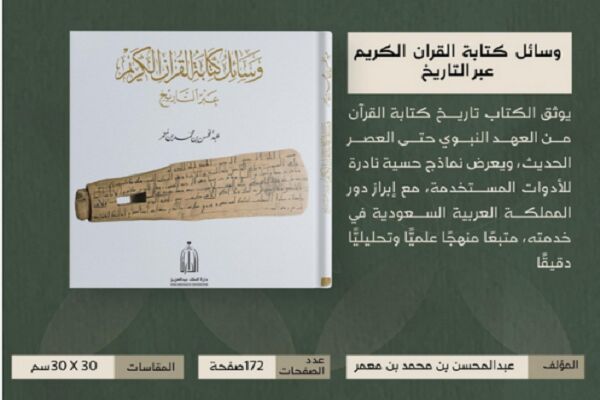 وسائل كتابة القران الكريم
عبر التاريخ
يوثق الكتاب تاريخ كتابة القرآن
من العهد النبوي حتى العصر
الحديث، ويعرض نماذج حسية نادرة
للأدوات المستخدمة، مع إبراز دور
المملكة العربية السعودية في
خدمته، متبعًا منهجًا علميًّا وتحليليًّا
دقيقًا
وسائل كتابة القرآن الكريم
عبر التاريخ
عبدالمحسن بن محمد بن معمر
دارة الملك عبدالعزيز
المؤلف
عبدالمحسن بن محمد بن معمر
عدد الصفحات
172صفحة
المقاسات
30 X 30سم